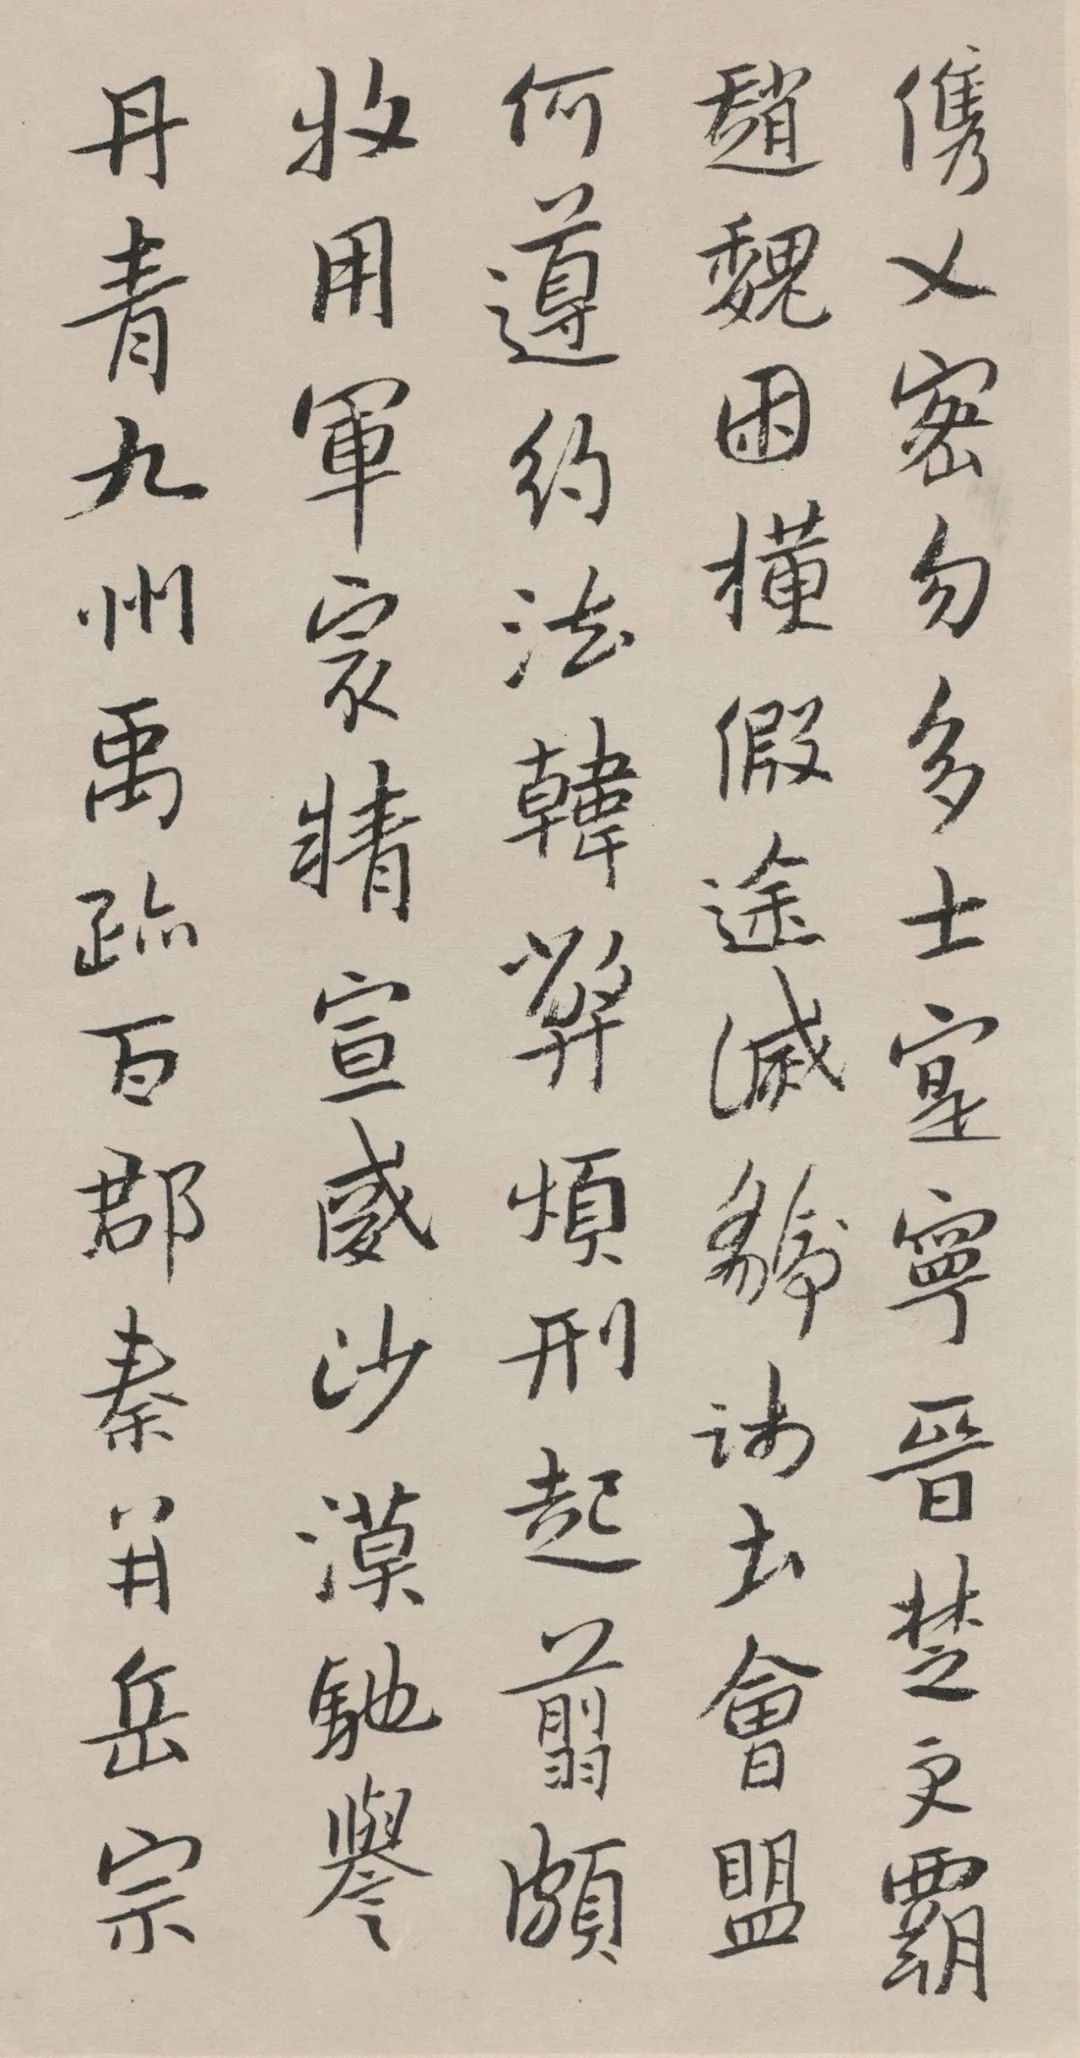 儁乂密勿多士寔寧晉楚更覇
趙魏困橫假途滅虢踐土會盟
何遵約法韓弊煩刑起翦頗
牧用軍寂精宣威沙漠馳譽
丹青九州禹跡百郡秦并岳宗